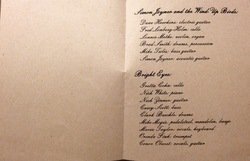 Simon Joyner and the Wind-Up Birds:
Dave Hawkins: electric guitar
Fred Lonberg-Holm: cello
Lonnie Methe: violin, organ
Brad Smith: drums, percussion
Mike Tulis: bass guitar
Simon Joyner: acoustic guitar
Bright Eyes:
Gretta Cohn: cello
Nick White: piano
Nick Zinner: guitar
Casey Scott: bass
Clark Baechle: drums
Mike Mogis: pedalsteel, mandolin, banjo
Maria Taylor: vocals, keyboard
Orenda Fink: trumpet
Conor Oberst: vocals, guitar